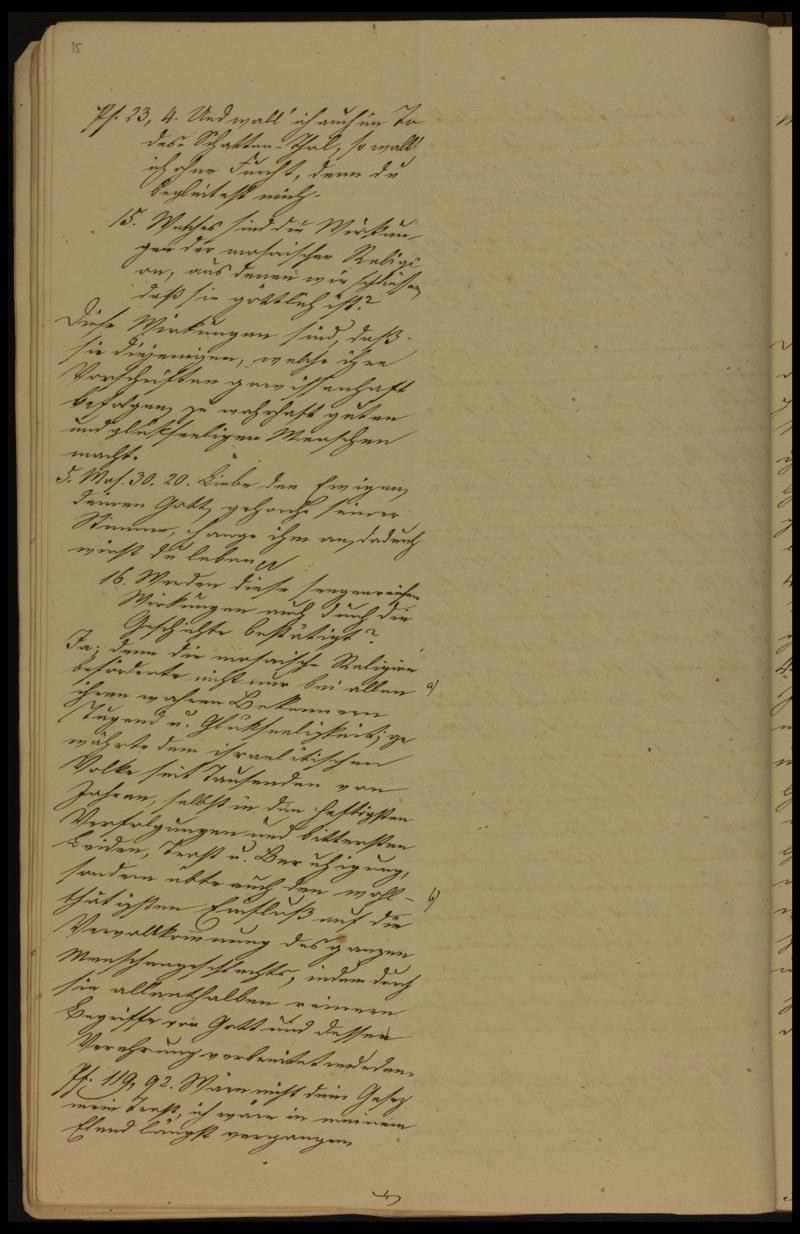 15
Ps. 23, 4. Und wall' ich auch im To
des-Schatten-Thal, so wall'
ich ohne Furcht, denn du
begleitest mich.
15. Welches sind die Wirkun-
gen der mosaischen Religi-
on, aus denen wir schliessen
daß sie göttlich ist?
Diese Wirkungen sind, daß
sie diejenigen, welche ihre
Vorschriften gewissenhaft
befolgen, zu wahrhaft guten
und glükseeligen Menschen
macht.
5. Mos. 30. 20. Liebe den Ewigen,
deinen Gott, gehorche seiner
Stimme, hange ihm an, dadurch
wirst du leben
16. Werden diese seegenreichen
Wirkungen auch durch die
Geschichte bestätigt?
Ja; denn die mosaische Religion
beförderte nicht nur bei allen a)
ihren wahren Bekennern
Tugend u. Glükseeligkeit; ge
währte dem israelitischen
Volke seit Tausenden von
Jahren, selbst in den heftigsten
Verfolgungen und bittersten
Leiden, Trost u. Beruhigung,
sondern übte auch den wohl- b)
thätigsten Einfluß auf die
Vervollkom̄nung des ganzen
Menschengeschlechts, indem durch
sie allenthalben reinere
Begriffe von Gott und dessen
Verehrung verbreitet wurden.
Ps. 119, 92. Wäre nicht dein Gesez
mein Trost, ich wäre in meinem
Elend längst vergangen